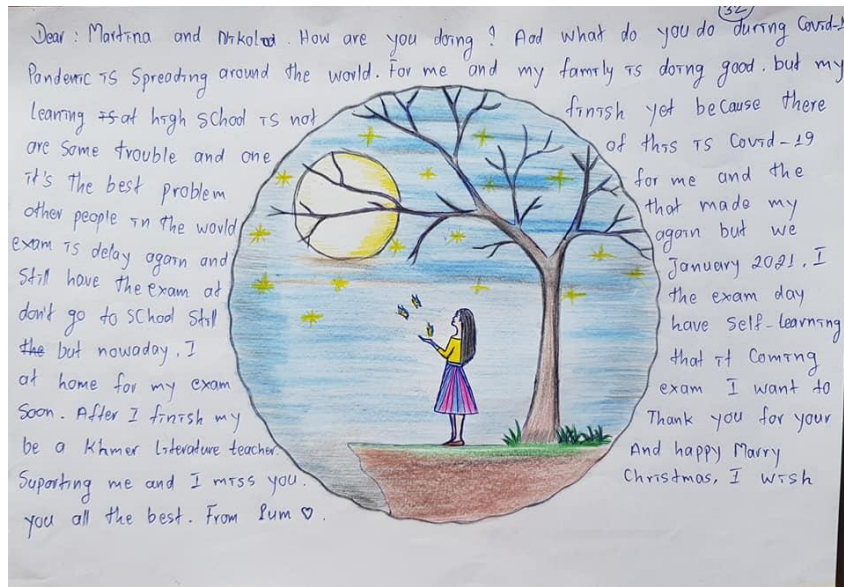 32
Dear : Martina and Nikola. How are you doing ? And what do you do during Covid-1
Pandemic is Spreading around the world. For me and my family is doing good. but my
learning is at high school is not finish yet because there
are some trouble and one of this is Covid-19
it's the best problem for me and the
other people in the world that made my
exam is delay again and again but we
Still have the exam at January 2021. I
don't go to school still the exam day
the but nowaday, I have Self-learning
at home for my exam that it Coming
Soon. After I finish my exam I want to
be a Khmer Literature teacher. Thank you for your
Suporting me and I miss you. And happy Marry
Christmas, I wish
you all the best. From Pum ♡.